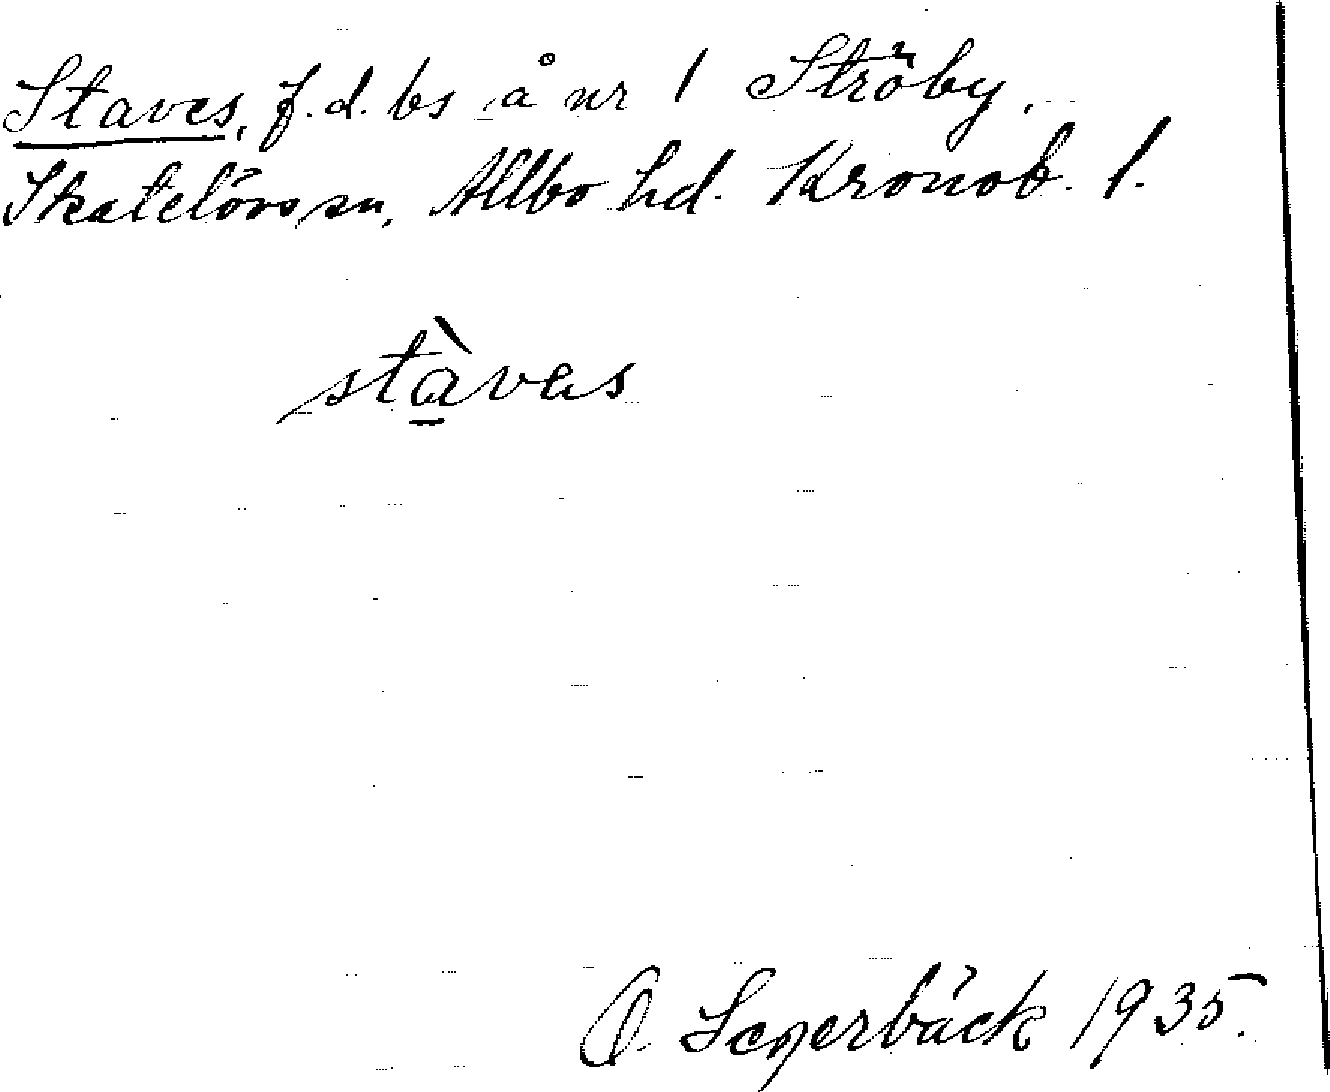 Staves, f.d. bs å nr 1 Ströby,
Skatelövs sn, Allbo hd. Kronob. l.
stàvas
O. Segerbäck 1935.